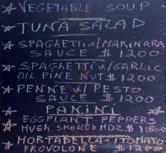 VEGETABLE SOUP
TUNA SALAD
SPAGHETTI W/ MARINARA
SAUCE $1200
SPAGHETTI W/GARLIC
OIL PINE NUT $1200
PENNE W/ PESTO
SAUCE $1200
PANINI
EGGPLANT-PEPPERS
SMOKED MOZ $1500
MORTADELLA TOMATO
PROVOLONE $1200